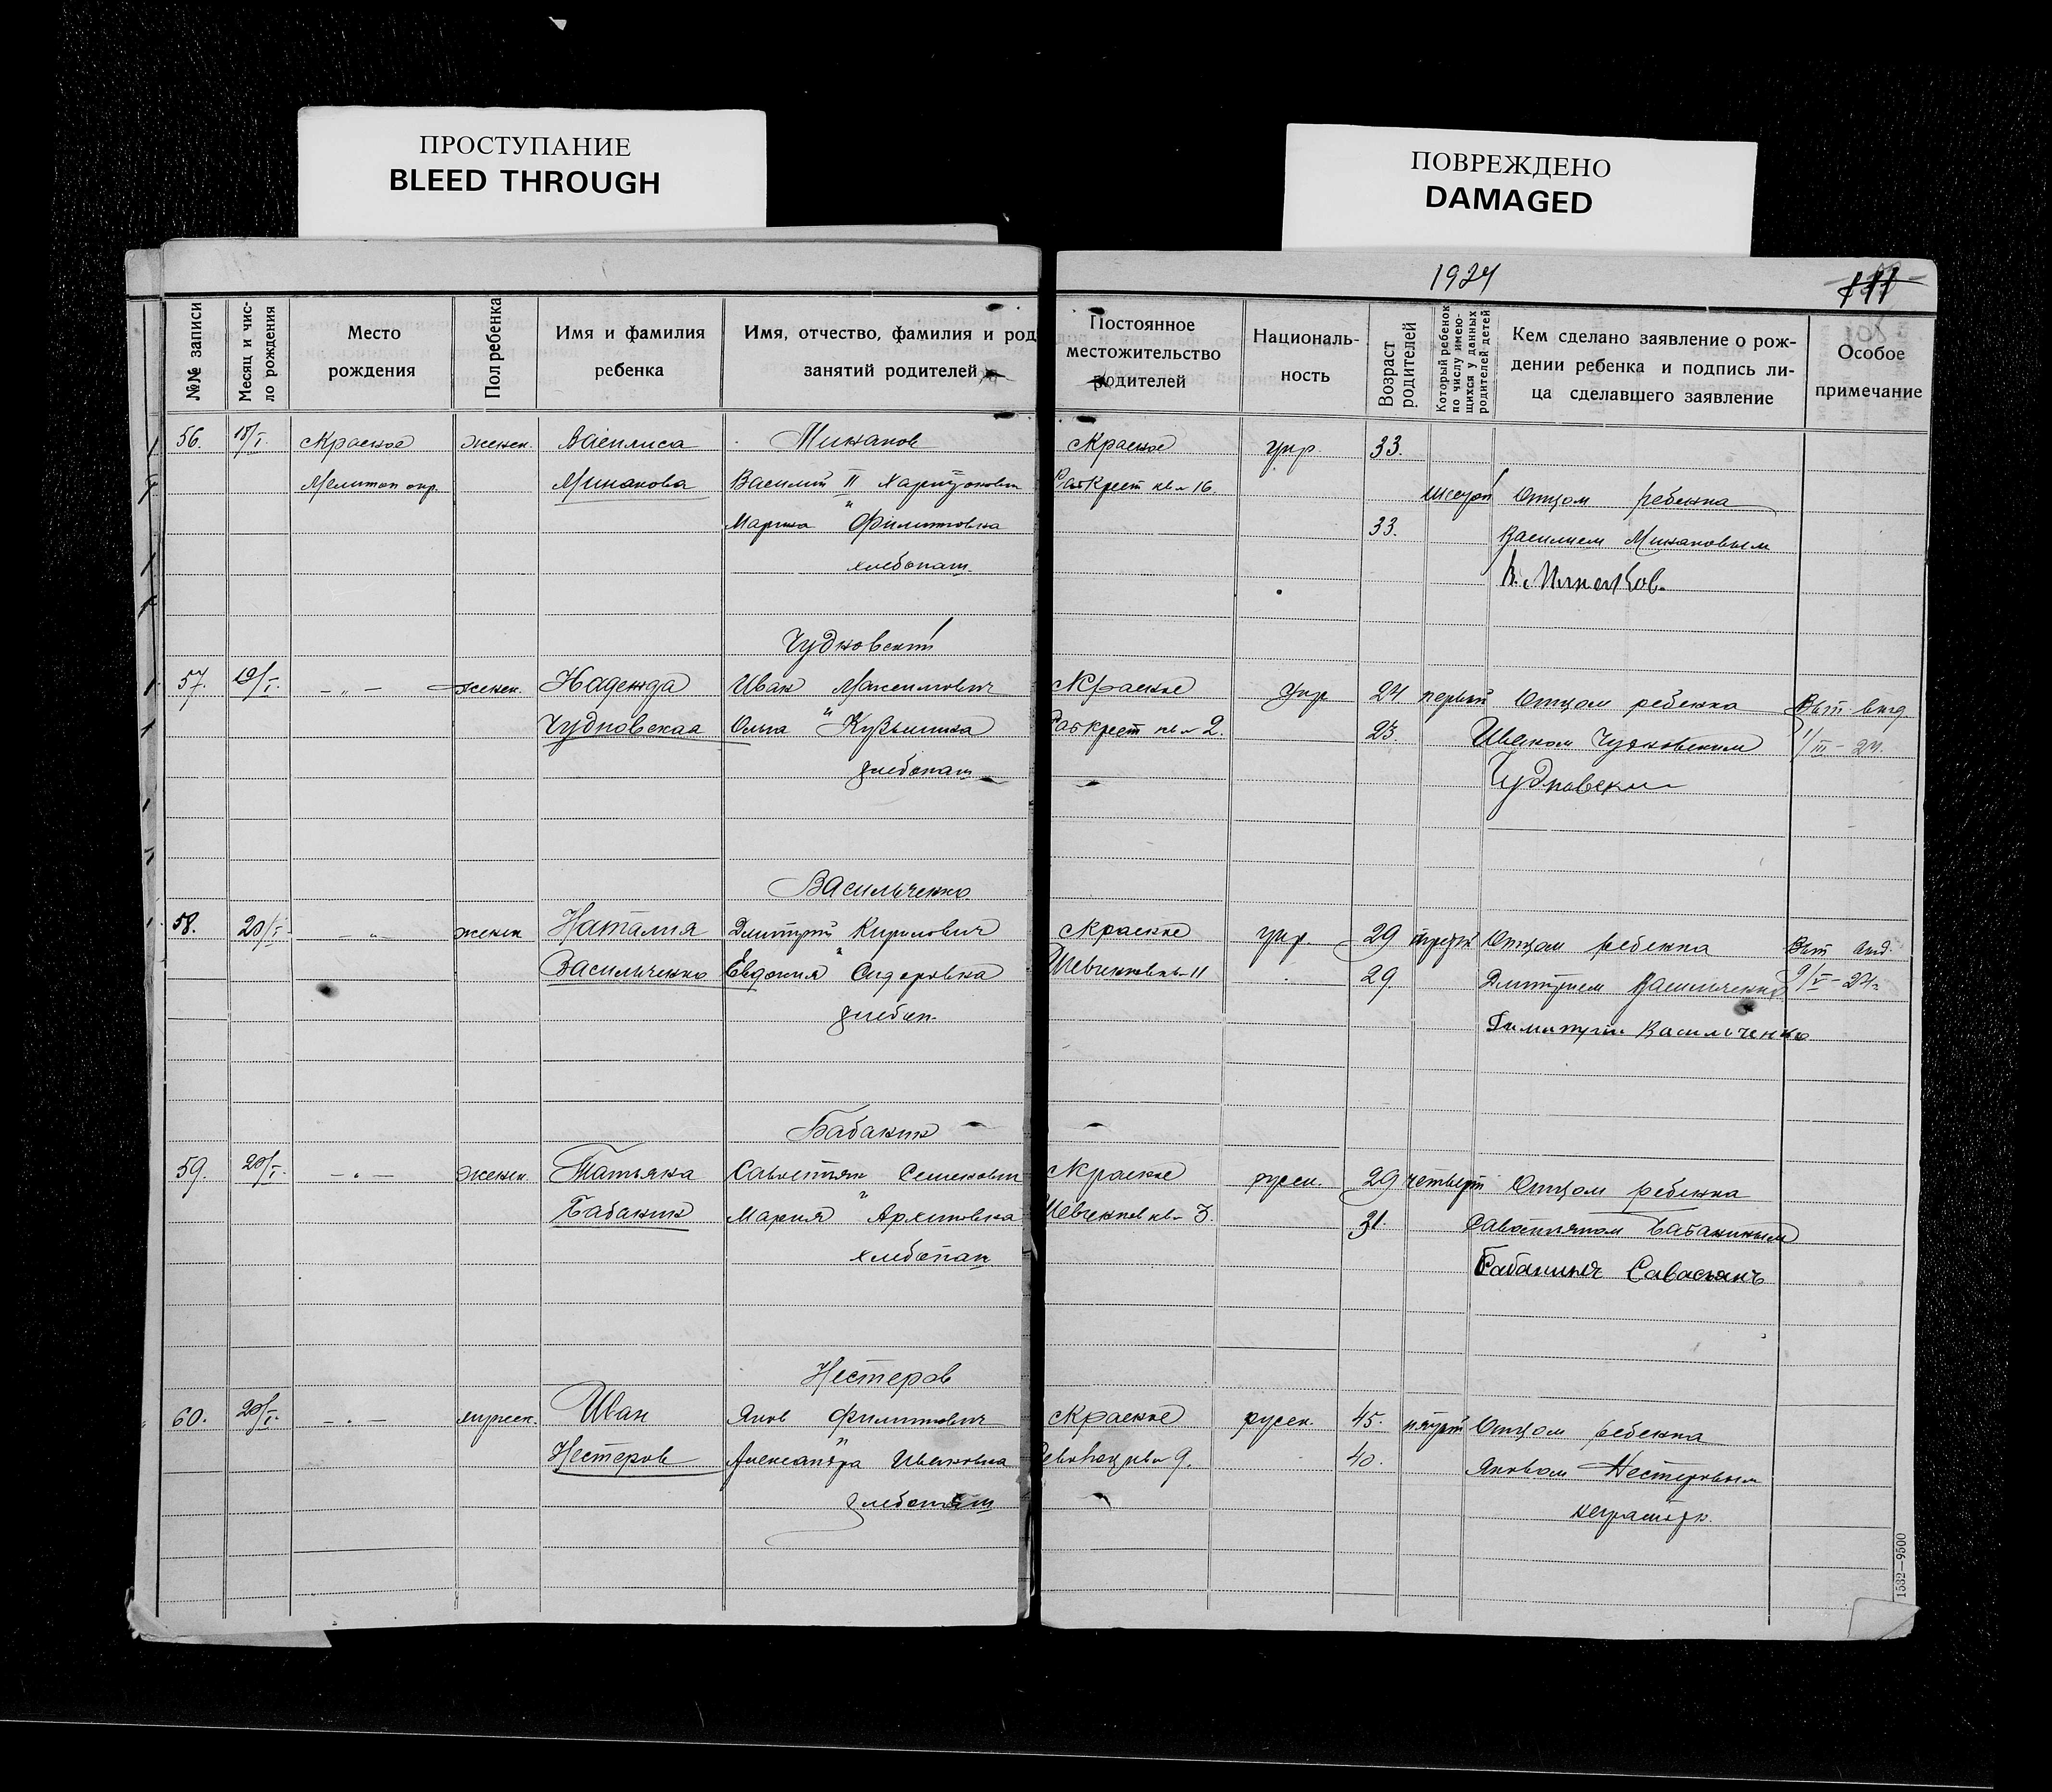 ПРОСТУПАНИЕ
BLEED THROUGH
ПОВРЕЖДЕНО
DAMAGED
1924
111
№№ записи
Месяц и чис-
ло рождения
Место
рождения
Пол ребенка
Имя и фамилия
ребенка
Имя, отчество, фамилия и род
занятий родителей
Постоянное
местожительство
родителей
Националь-
ность
Возраст
родителей
Который ребенок
по числу имею-
щихся у данных
родителей детей
Кем сделано заявление о рож-
дении ребенка и подпись ли-
ца сделавшего заявление
Особое
примечание
56. 15/I. с Красное женск. Василиса Минаков с Красное укр. 33.
Мелитоп окр. Минакова Василий II Харитонович кв 16. шестой Отцом ребенка
Марина " Филипповна 33. Василием Минаковым
хлебопаш. В. Минаков.
Чудновский
57. 19/I. — „ — женск. Надежда Иван Максимович с Красное укр 24 первый Отцом ребенка
Чудновская Ольга " Кузьминна кв 2. 23 Иваном Чудновским 1/III – 24.
хлебопаш Чудновски
Васильченко
58. 20/I. — „ — женск Наталия Дмитрий Кирилович с Красное укр. 29 третий Отцом ребенка
Васильченко Евдокия " Сидоровна Шевченков кв – 11 29 Дмитрием Васильченко 9/V – 24
хлебоп. Васильченко
Бабакин
59. 20/I. — „ — женск. Татьяна Савостьян Семенович с Красное русск. 29 четверт Отцом ребенка
Бабакин Мария " Архиповна Шевченков кв – 3. 31. Савостьяном Бабакиным
хлебопаш Бабакинъ
Нестеров
60. 20/I. — „ — мужск. Иван Яков Филиппович с Красное русск. 45. пятый Отцом ребенка
Нестеров Александра " Ивановна кв 9. 40. Яковом Нестеровым
хлебопаш неграмотн.
1532—9500